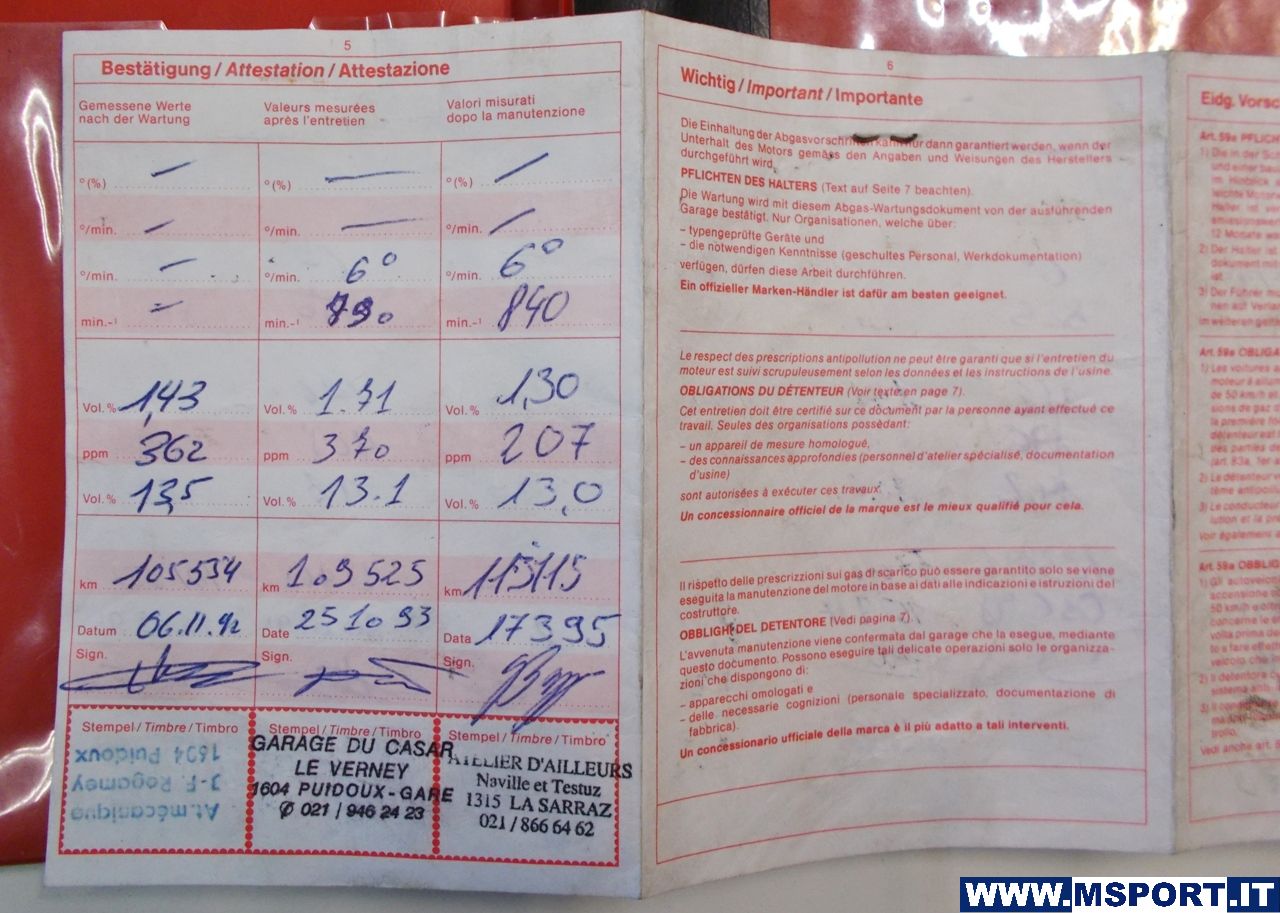 5
Bestätigung / Attestation / Attestazione
Gemessene Werte
nach der Wartung
Valeurs mesurées
après l'entretien
Valori misurati
dopo la manutenzione
°(%) – °(%) – °(%) –
°/min. – °/min. – °/min. –
°/min. – °/min. 6° °/min. 6°
min.-¹ – min.-¹ 790 min.-¹ 840
Vol.% 1,43 Vol.% 1.31 Vol.% 1,30
ppm 362 ppm 370 ppm 207
Vol.% 13,5 Vol.% 13.1 Vol.% 13,0
km 105534 km 109525 km 115115
Datum 06.11.92 Date 251093 Data 17395
Sign. Sign. Sign.
Stempel / Timbre / Timbro Stempel / Timbre / Timbro Stempel / Timbre / Timbro
At. mécanique
J-F. Regamey
1604 Puidoux
GARAGE DU CASAR
LE VERNEY
1604 PUIDOUX-GARE
✆ 021 / 946 24 23
ATELIER D'AILLEURS
Naville et Testuz
1315 LA SARRAZ
021 / 866 64 62
6
Wichtig / Important / Importante
Die Einhaltung der Abgasvorschriften kann nur dann garantiert werden, wenn der
Unterhalt des Motors gemäss den Angaben und Weisungen des Herstellers
durchgeführt wird.
PFLICHTEN DES HALTERS (Text auf Seite 7 beachten).
Die Wartung wird mit diesem Abgas-Wartungsdokument von der ausführenden
Garage bestätigt. Nur Organisationen, welche über:
– typengeprüfte Geräte und
– die notwendigen Kenntnisse (geschultes Personal, Werkdokumentation)
verfügen, dürfen diese Arbeit durchführen.
Ein offizieller Marken-Händler ist dafür am besten geeignet.
Le respect des prescriptions antipollution ne peut être garanti que si l'entretien du
moteur est suivi scrupuleusement selon les données et les instructions de l'usine.
OBLIGATIONS DU DÉTENTEUR (Voir texte en page 7).
Cet entretien doit être certifié sur ce document par la personne ayant effectué ce
travail. Seules des organisations possèdant:
– un appareil de mesure homologué,
– des connaissances approfondies (personnel d'atelier spécialisé, documentation
d'usine)
sont autorisées à exécuter ces travaux.
Un concessionnaire officiel de la marque est le mieux qualifié pour cela.
Il rispetto delle prescrizioni sui gas di scarico può essere garantito solo se viene
eseguita la manutenzione del motore in base ai dati alle indicazioni e istruzioni del
costruttore.
OBBLIGHI DEL DETENTORE (Vedi pagina 7).
L'avvenuta manutenzione viene confermata dal garage che la esegue, mediante
questo documento. Possono eseguire tali delicate operazioni solo le organizza-
zioni che dispongono di:
– apparecchi omologati e
– delle necessarie cognizioni (personale specializzato, documentazione di
fabbrica).
Un concessionario ufficiale della marca è il più adatto a tali interventi.
Eidg. Vorsc
Art. 59a PFLICH
Art. 59a OBLIGA
Art. 59a OBBLIG
WWW.MSPORT.IT